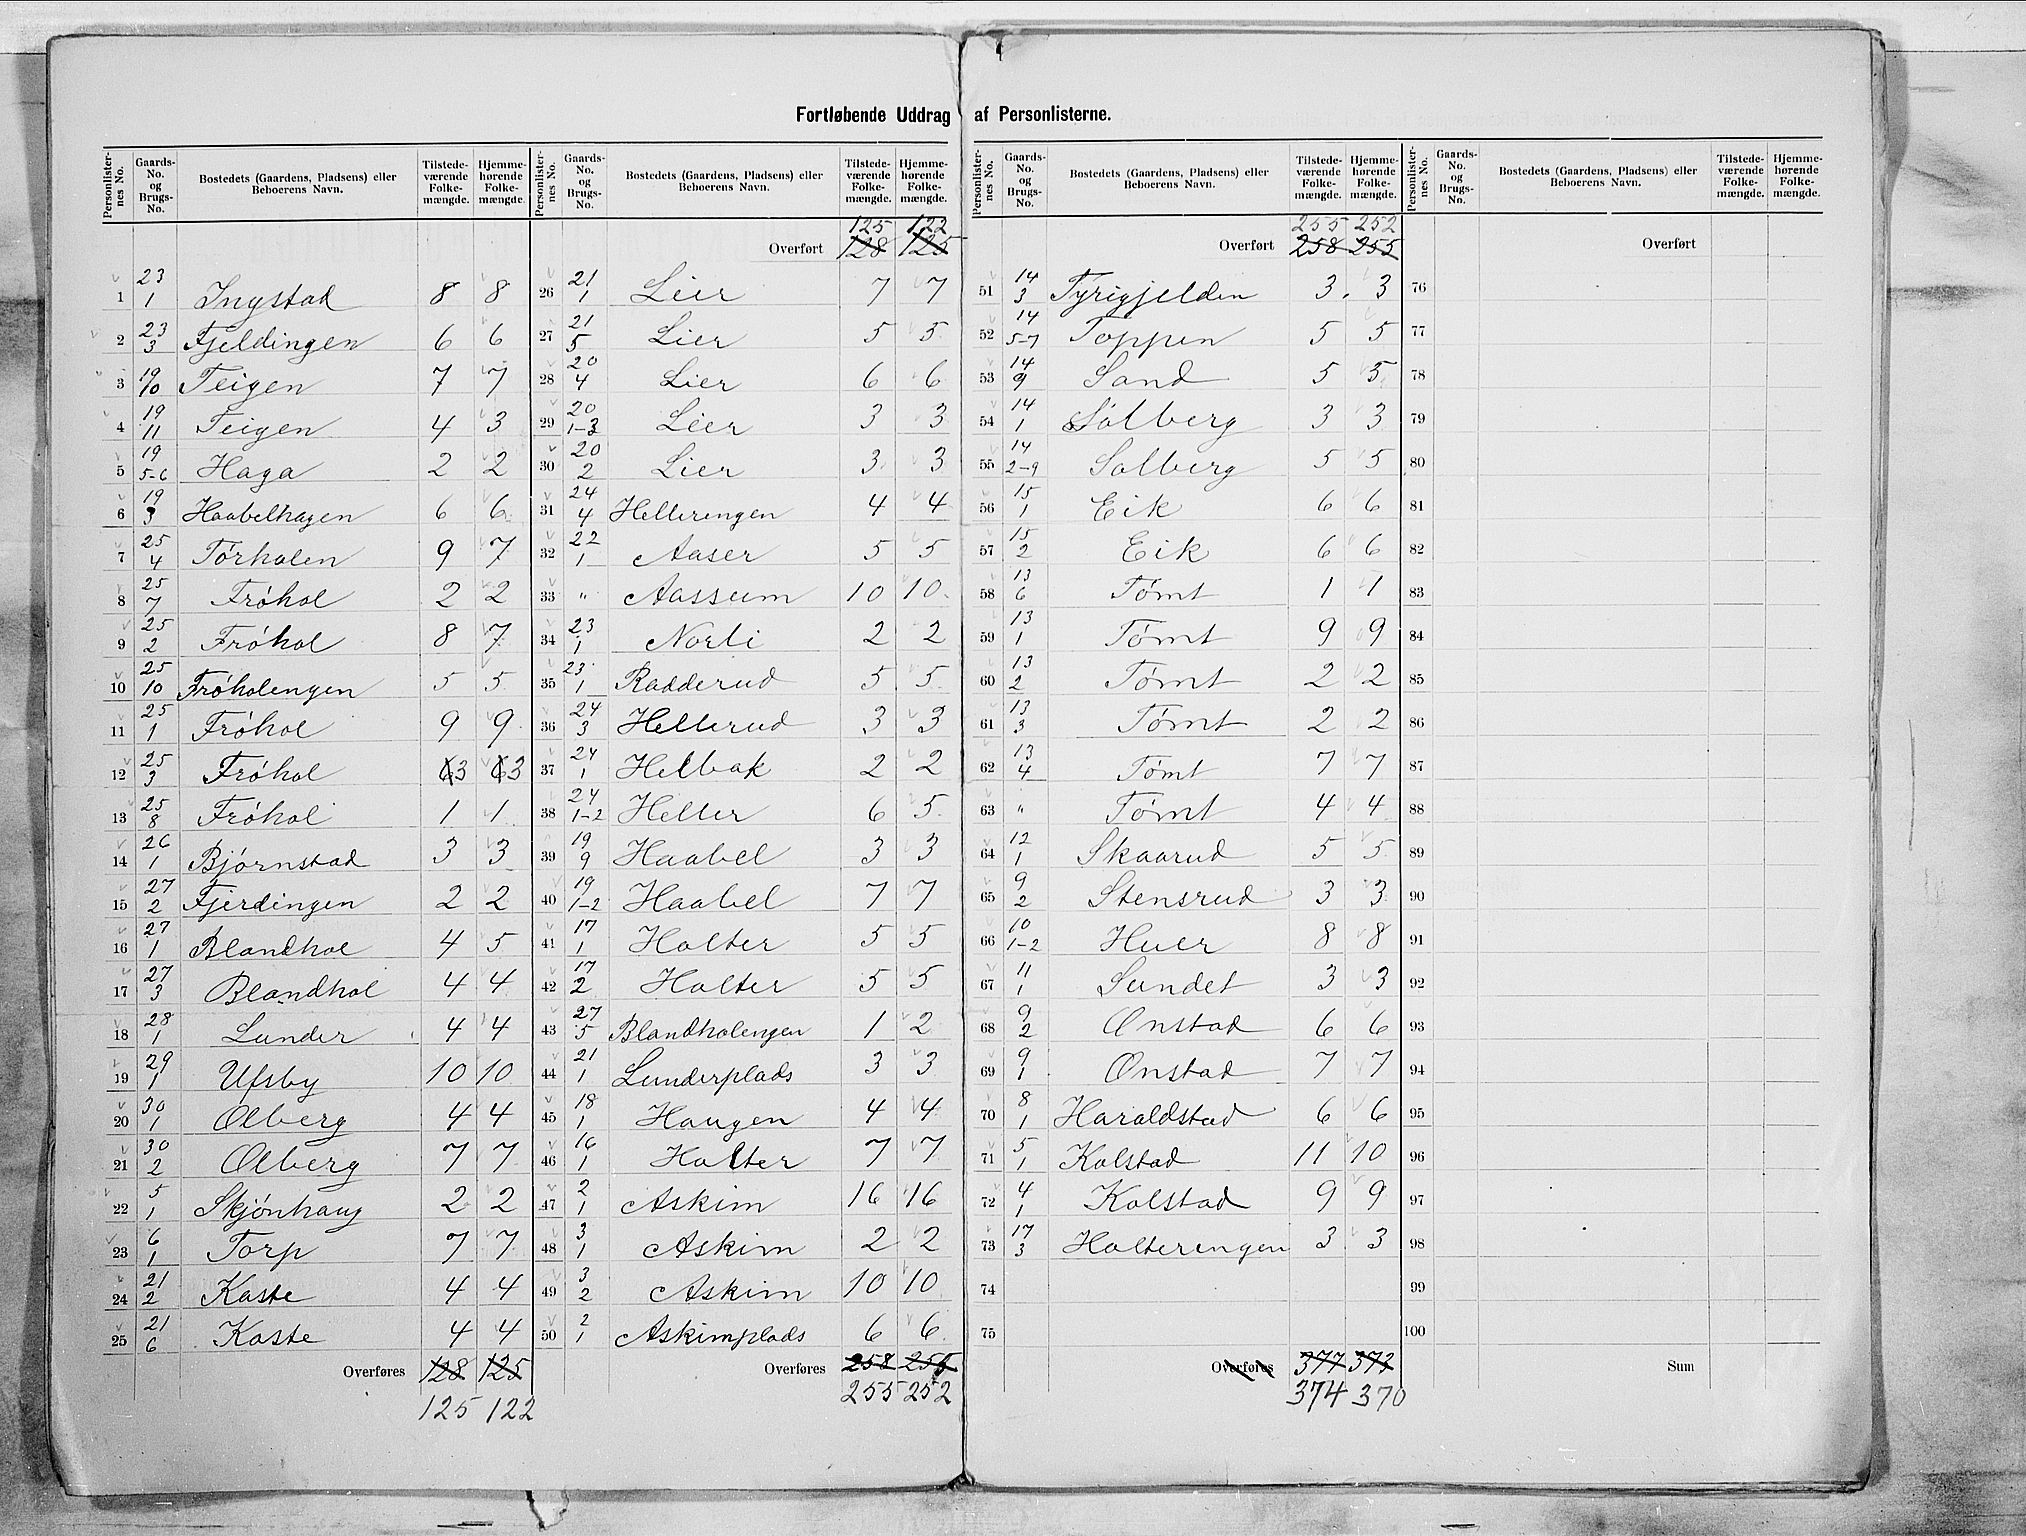 Fortløbende Uddrag af Personlisterne.
Personlister-nes No. | Gaards-No. og Brugs-No. | Bostedets (Gaardens, Pladsens) eller Beboerens Navn. | Tilstede-værende Folke-mængde. | Hjemme-hørende Folke-mængde.
1 | 23/1 | Ingstad | 8 | 8
2 | 23/3 | Fjeldingen | 6 | 6
3 | 19/10 | Teigen | 7 | 7
4 | 19/11 | Teigen | 4 | 3
5 | 19/5-6 | Haga | 2 | 2
6 | 19/3 | Haabelhagen | 6 | 6
7 | 25/4 | Tørholen | 9 | 7
8 | 25/7 | Frøhol | 2 | 2
9 | 25/2 | Frøhol | 8 | 7
10 | 25/10 | Frøholengen | 5 | 5
11 | 25/1 | Frøhol | 9 | 9
12 | 25/3 | Frøhol | 6 3 | 6 3
13 | 25/8 | Frøhol | 1 | 1
14 | 26/1 | Bjørnstad | 3 | 3
15 | 27/2 | Fjerdingen | 2 | 2
16 | 27/1 | Blandhol | 4 | 5
17 | 27/3 | Blandhol | 4 | 4
18 | 28/1 | Lunder | 4 | 4
19 | 29/1 | Ufsby | 10 | 10
20 | 30/1 | Olberg | 4 | 4
21 | 30/2 | Olberg | 7 | 7
22 | 5/1 | Skjønhaug | 2 | 2
23 | 6/1 | Torp | 7 | 7
24 | 21/2 | Kaste | 4 | 4
25 | 21/6 | Kaste | 4 | 4
Overføres | 128 | 125
125 | 122
Personlister-nes No. | Gaards-No. og Brugs-No. | Bostedets (Gaardens, Pladsens) eller Beboerens Navn. | Tilstede-værende Folke-mængde. | Hjemme-hørende Folke-mængde.
125 | 122
Overført | 128 | 125
26 | 21/1 | Lier | 7 | 7
27 | 21/5 | Lier | 5 | 5
28 | 20/4 | Lier | 6 | 6
29 | 20/1-3 | Lier | 3 | 3
30 | 20/2 | Lier | 3 | 3
31 | 24/4 | Hellerengen | 4 | 4
32 | 22/1 | Aaser | 5 | 5
33 | " | Aassum | 10 | 10
34 | 23/1 | Norli | 2 | 2
35 | 23/1 | Radderud | 5 | 5
36 | 24/3 | Hellerud | 3 | 3
37 | 24/1 | Helbak | 2 | 2
38 | 24/1-2 | Heller | 6 | 5
39 | 19/9 | Haabel | 3 | 3
40 | 19/1-2 | Haabel | 7 | 7
41 | 17/1 | Holter | 5 | 5
42 | 17/2 | Holter | 5 | 5
43 | 27/5 | Blandholengen | 1 | 2
44 | 21/1 | Lunderplads | 3 | 3
45 | 18/1 | Haugen | 4 | 4
46 | 16/1 | Holter | 7 | 7
47 | 2/1 | Askim | 16 | 16
48 | 3/1 | Askim | 2 | 2
49 | 3/2 | Askim | 10 | 10
50 | 2/1 | Askimplads | 6 | 6
Overføres | 258 | 255
255 | 252
Personlister-nes No. | Gaards-No. og Brugs-No. | Bostedets (Gaardens, Pladsens) eller Beboerens Navn. | Tilstede-værende Folke-mængde. | Hjemme-hørende Folke-mængde.
255 | 252
Overført | 258 | 255
51 | 14/3 | Tyrigjelden | 3 | 3
52 | 14/5-7 | Toppen | 5 | 5
53 | 14/9 | Sand | 5 | 5
54 | 14/1 | Solberg | 3 | 3
55 | 14/2-9 | Solberg | 5 | 5
56 | 15/1 | Eik | 6 | 6
57 | 15/2 | Eik | 6 | 6
58 | 13/6 | Tømt | 1 | 1
59 | 13/1 | Tømt | 9 | 9
60 | 13/2 | Tømt | 2 | 2
61 | 13/3 | Tømt | 2 | 2
62 | 13/4 | Tømt | 7 | 7
63 | " | Tømt | 4 | 4
64 | 12/1 | Skaarud | 5 | 5
65 | 9/2 | Stensrud | 3 | 3
66 | 10/1-2 | Huer | 8 | 8
67 | 11/1 | Sundet | 3 | 3
68 | 9/2 | Onstad | 6 | 6
69 | 9/1 | Onstad | 7 | 7
70 | 8/1 | Haraldstad | 6 | 6
71 | 5/1 | Kolstad | 11 | 10
72 | 4/1 | Kolstad | 9 | 9
73 | 17/3 | Holterengen | 3 | 3
74
75
Overføres | 377 | 373
374 | 370
Personlister-nes No. | Gaards-No. og Brugs-No. | Bostedets (Gaardens, Pladsens) eller Beboerens Navn. | Tilstede-værende Folke-mængde. | Hjemme-hørende Folke-mængde.
Overført
76
77
78
79
80
81
82
83
84
85
86
87
88
89
90
91
92
93
94
95
96
97
98
99
100
Sum